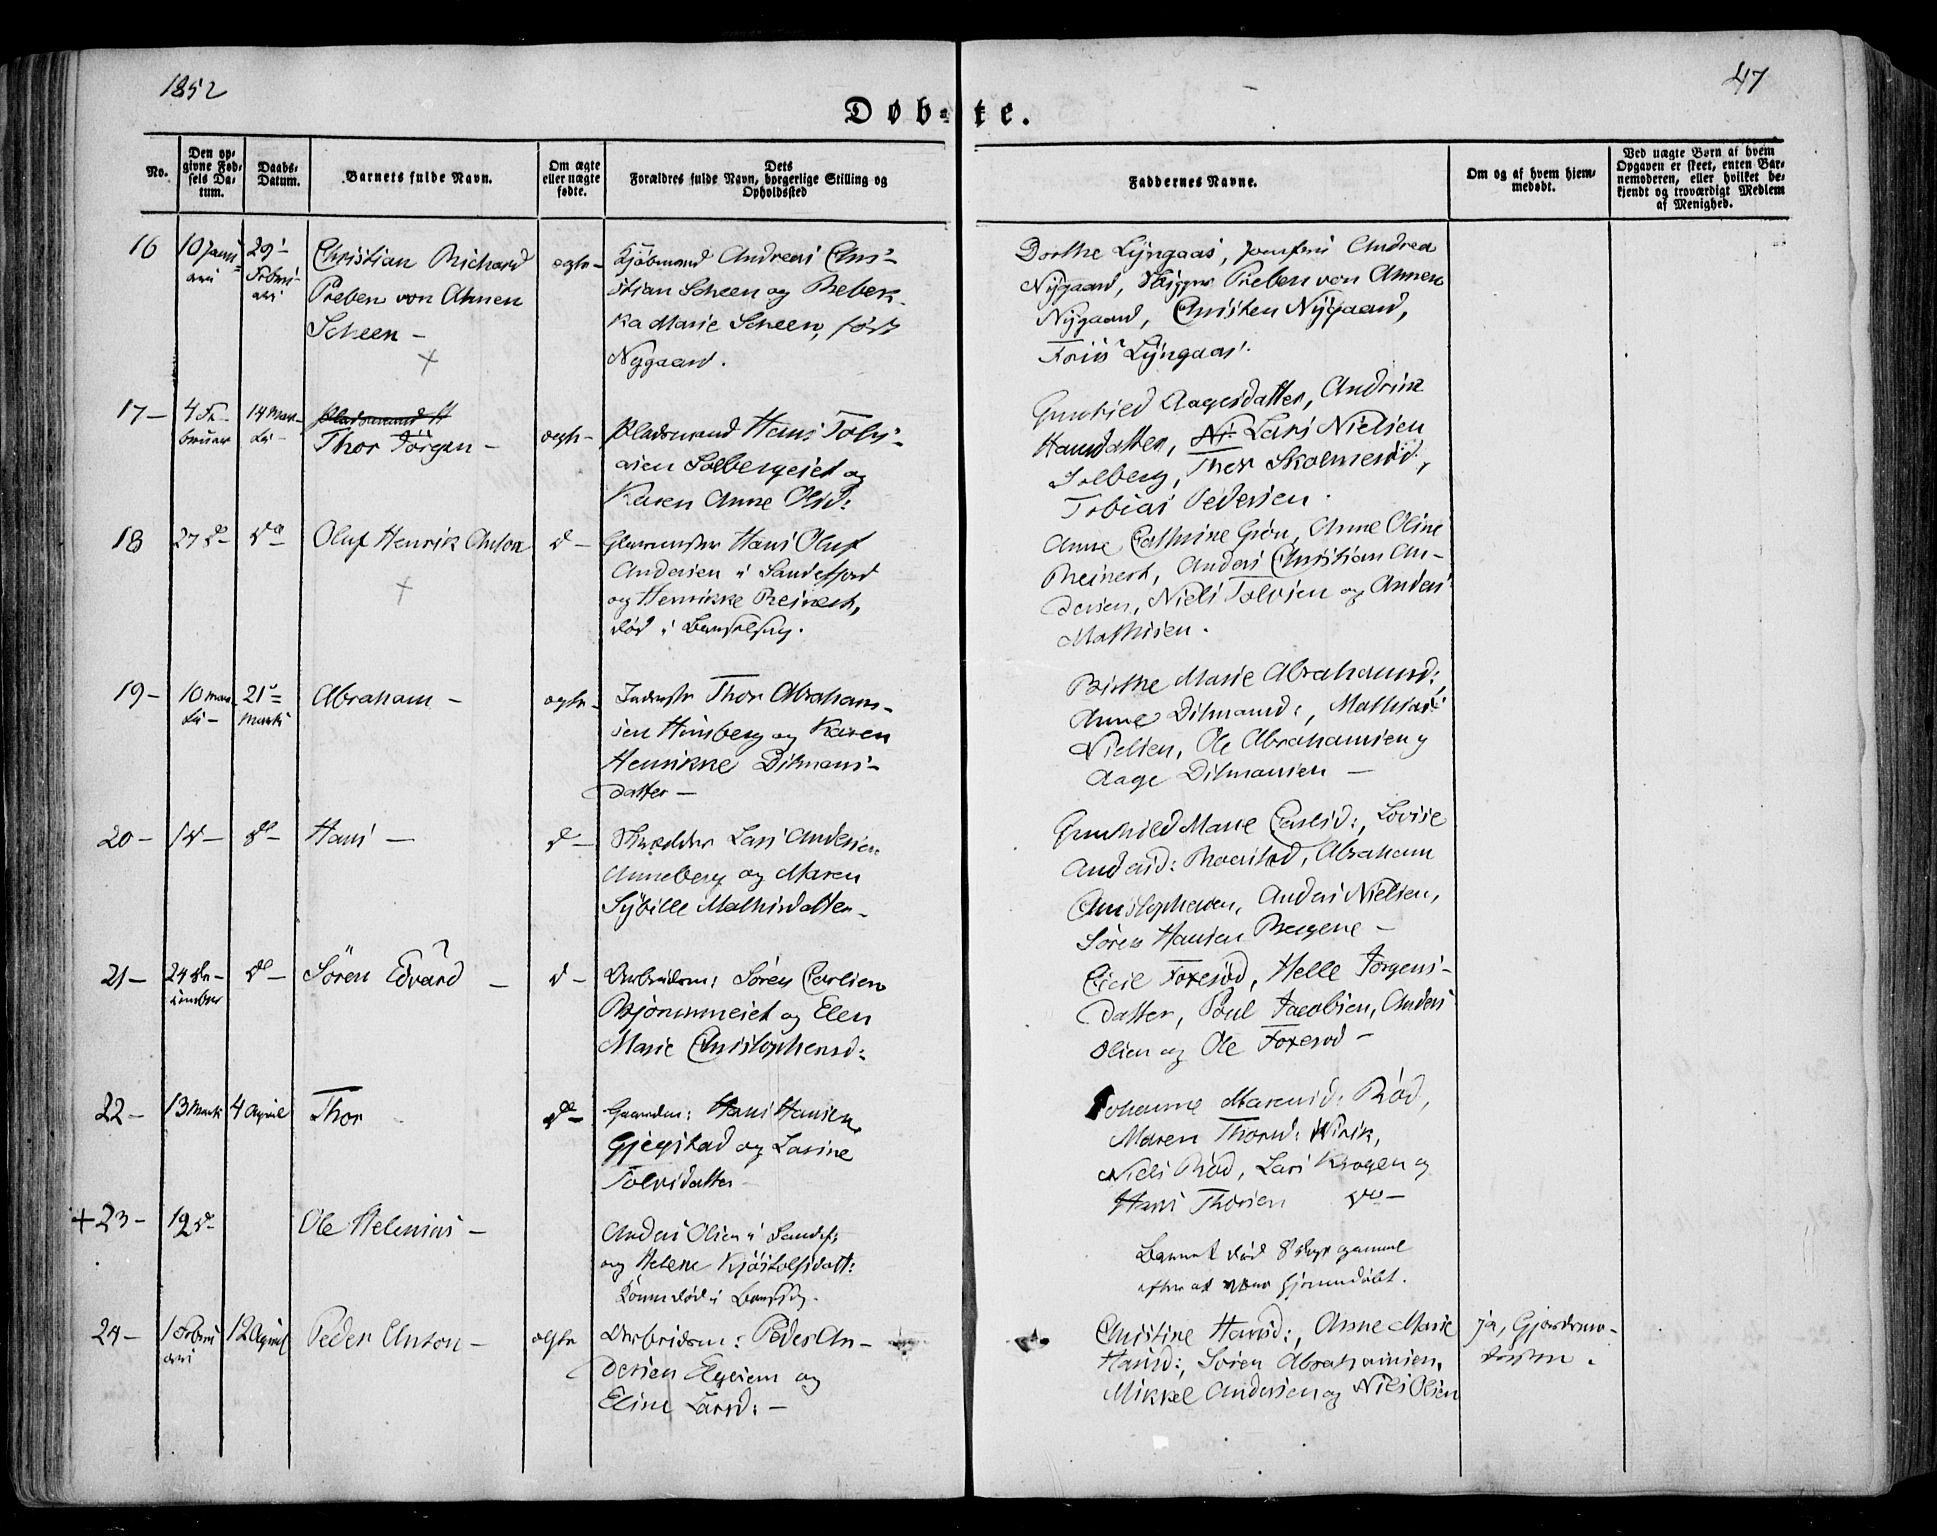 1852
47
Døb-te.
No.
Den op-
givne Fød-
sels Da-
tum.
Daabs-
Datum.
Barnets fulde Navn.
Om ægte
eller uægte
fødte.
Dets
Forældres fulde Navn, borgerlige Stilling og
Opholdssted
Faddernes Navne.
Om og af hvem hjem-
medøbt.
Ved uægte Børn af hvem
Opgaven er skeet, enten Bar-
nemoderen, eller hvilket be-
kjendt og troværdigt Medlem
af Menighed.
16
10 Janu-
ari
29
Februari
Christian Richard
Preben von Ahnen
Scheen -
ægte -
Kjøbmand Andreas Chri-
stian Scheen og Rebek-
ka Marie Scheen, født
Nygaard.
Dorthe Lÿngaas, Jomfru Andrea
Nÿgaard, Skipper Preben von Ahnen
Nÿgaard, Christen Nÿgaard,
Friis Lÿngaas.
17 -
4 Fe-
bruar
14 Mar-
ti -
Pladsmand H
Thor Jörgen -
ægte -
Pladsmand Hans Tobi-
asen Solbergeiet og
Karen Anne Olsd:
Gunhild Aagesdatter, Andrine
Hansdatter, Ni Lars Nielsen
Solberg, Thor Skolmeröd,
Tobias Pedersen.
18
27 d -
do
Oluf Henrik Anton
d -
Glarmester Hans Oluf
Andersen i Sandefjord
og Henrikke Reinert,
død i Barselseng.
Anne Cathrine Grøn, Anne Oline
Reinert, Anders Christian An-
dersen, Niels Tolvsen og Anders
Mathisen.
19 -
10 Mar-
ti -
21
Marti
Abraham -
ægte -
Inderste Thor Abraham-
sen Himberg og Karen
Henrikke Ditmans-
datter -
Birthe Marie Abrahamsd:,
Anne Ditmansd:, Mathias
Nielsen, Ole Abrahamsen og
Aage Ditmansen -
20 -
1 d -
do -
Hans -
d -
Skrædder Lars Andersen
Anneberg og Maren
Sÿbille Mathisdatter -
Gunhild Marie Carlsd:, Lovise
Andersd: Roerstad, Abraham
Christophersen, Anders Nielsen,
Sören Hansen Bergene -
21 -
24 De-
cember
do -
Sören Edvard -
d -
Arbeidsm: Sören Carlsen
Bjørnumeiet og Elen
Marie Christophersd:
Cicil Foxeröd, Helle Jörgens-
datter, Poul Jacobsen, Anders
Olsen og Ole Foxeröd -
22 -
13 Marti
4 April
Thor
do -
Gaardm: Hans Hansen
Gjegstad og Lasine
Tolvsdatter -
Johanne Marensd: Röd,
Maren Thorsd: Virik,
Niels Röd, Lars Krogen og
Hans Thorsen do -
+ 23 -
19 d -
Ole Helenius -
Anders Olsen i Sandef:
og Helene Kjöstolfsdatt:
Konen død i Barselsg.
Barnet død 8 Dage gammel
efter at være hjemmedøbt.
24 -
1 Febru-
ari
12 April
Peder Anton -
ægte
Arbeidsm: Peder An-
dersen Hgeiem og
Eline Larsd: -
Christine Hansd:, Anne Marie
Hansd:, Sören Abrahamsen,
Mikkel Andersen og Niels Olsen
ja, Gjordemo-
deren.